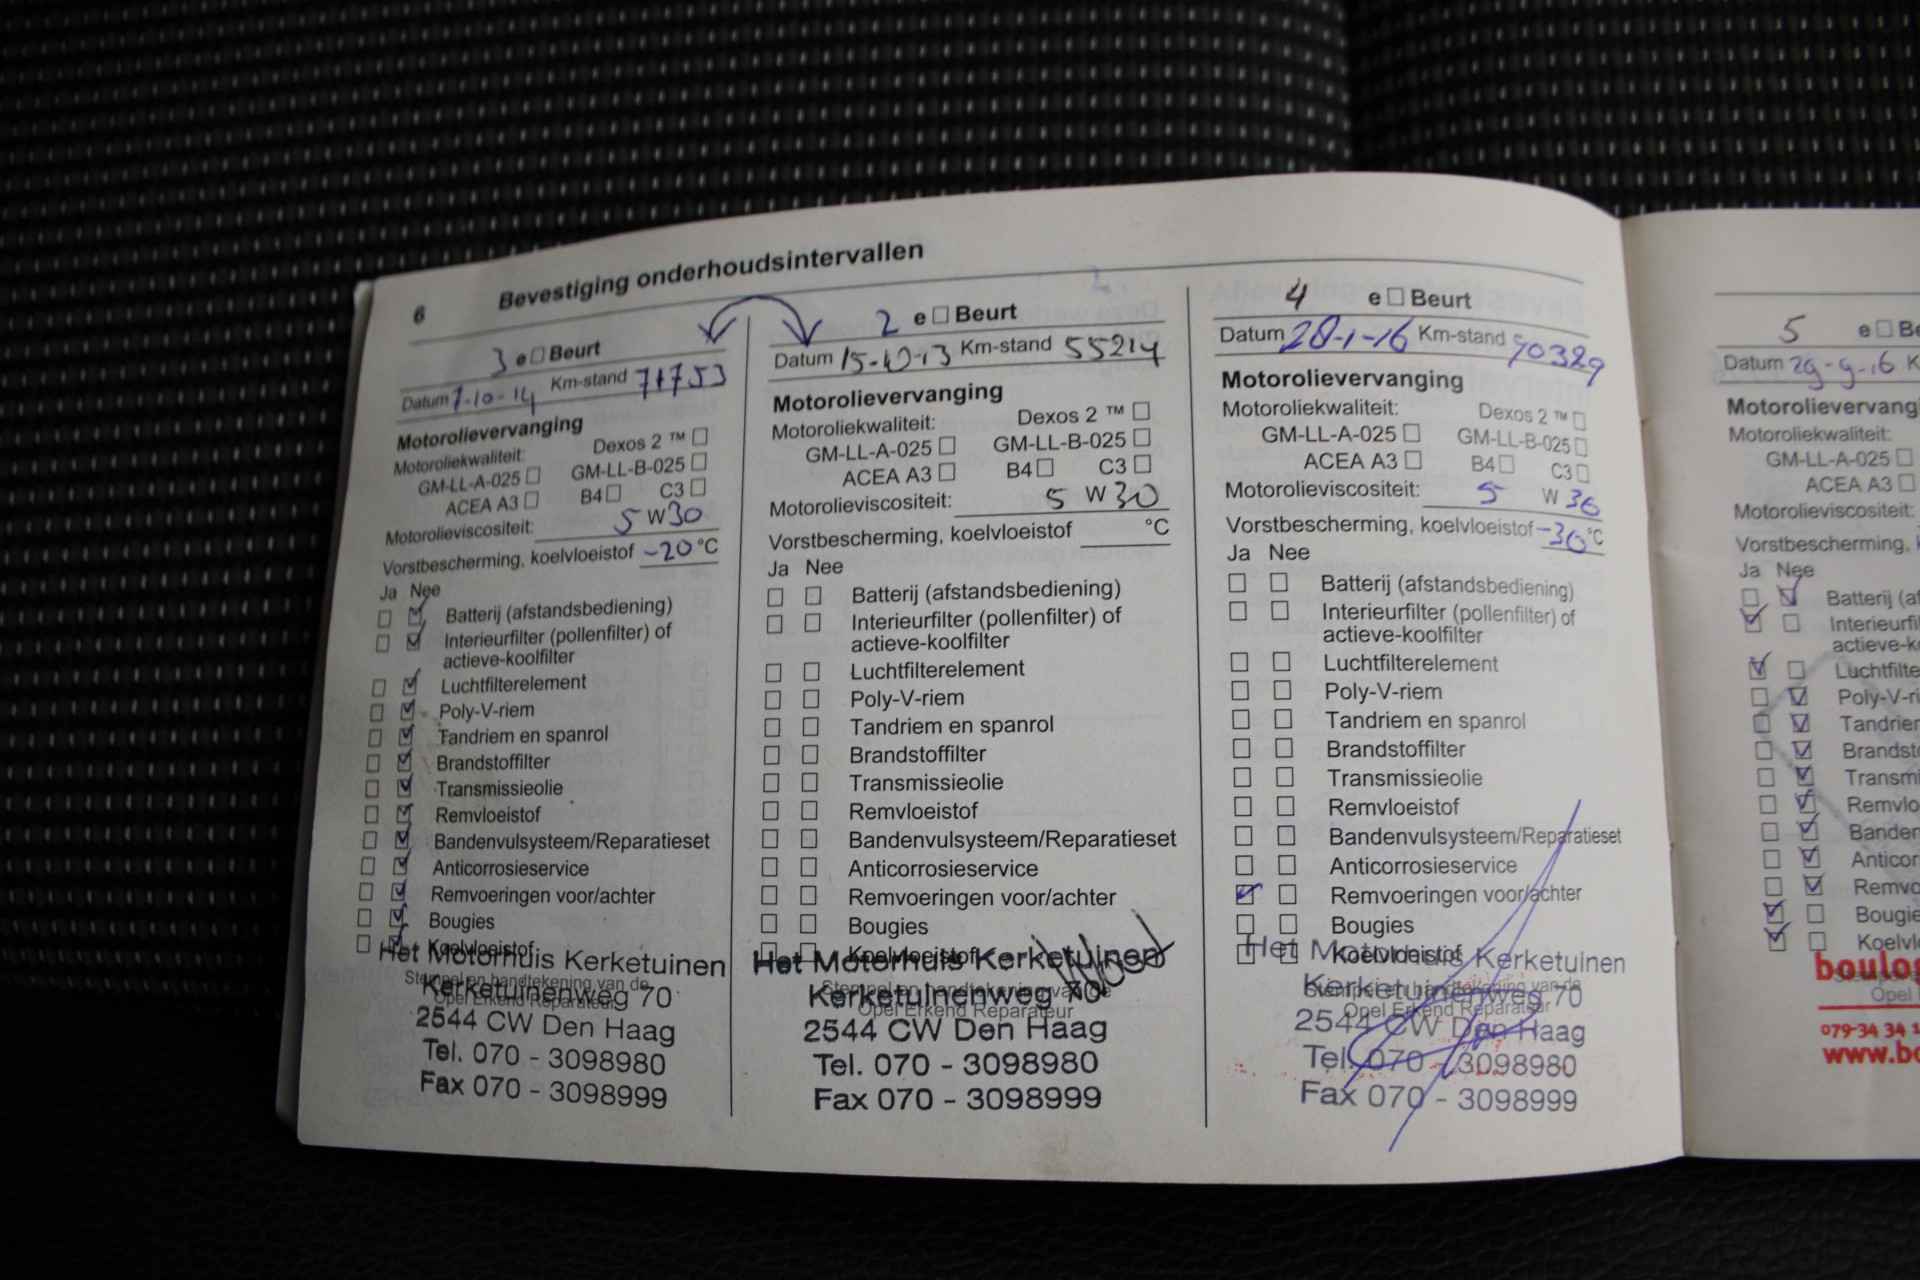 6 Bevestiging onderhoudsintervallen
3 e Beurt
Datum 7-10-14 Km-stand 71753
Motorolievervanging
Motoroliekwaliteit: Dexos 2 ™
GM-LL-A-025 GM-LL-B-025
ACEA A3 B4 C3
Motorolieviscositeit: 5 W30
Vorstbescherming, koelvloeistof -20 °C
Ja Nee
Batterij (afstandsbediening)
Interieurfilter (pollenfilter) of
actieve-koolfilter
Luchtfilterelement
Poly-V-riem
Tandriem en spanrol
Brandstoffilter
Transmissieolie
Remvloeistof
Bandenvulsysteem/Reparatieset
Anticorrosieservice
Remvoeringen voor/achter
Bougies
Koelvloeistof
Het Motorhuis Kerketuinen
Stempel en handtekening van de
Kerketuinenweg 70
Opel Erkend Reparateur
2544 CW Den Haag
Tel. 070 - 3098980
Fax 070 - 3098999
2 e Beurt
Datum 15-10-13 Km-stand 55214
Motorolievervanging
Motoroliekwaliteit: Dexos 2 ™
GM-LL-A-025 GM-LL-B-025
ACEA A3 B4 C3
Motorolieviscositeit: 5 W30
Vorstbescherming, koelvloeistof °C
Ja Nee
Batterij (afstandsbediening)
Interieurfilter (pollenfilter) of
actieve-koolfilter
Luchtfilterelement
Poly-V-riem
Tandriem en spanrol
Brandstoffilter
Transmissieolie
Remvloeistof
Bandenvulsysteem/Reparatieset
Anticorrosieservice
Remvoeringen voor/achter
Bougies
Koelvloeistof
Het Motorhuis Kerketuinen
Stempel en handtekening van de
Kerketuinenweg 70
Opel Erkend Reparateur
2544 CW Den Haag
Tel. 070 - 3098980
Fax 070 - 3098999
4 e Beurt
Datum 28-1-16 Km-stand 90329
Motorolievervanging
Motoroliekwaliteit: Dexos 2 ™
GM-LL-A-025 GM-LL-B-025
ACEA A3 B4 C3
Motorolieviscositeit: 5 W 30
Vorstbescherming, koelvloeistof -30 °C
Ja Nee
Batterij (afstandsbediening)
Interieurfilter (pollenfilter) of
actieve-koolfilter
Luchtfilterelement
Poly-V-riem
Tandriem en spanrol
Brandstoffilter
Transmissieolie
Remvloeistof
Bandenvulsysteem/Reparatieset
Anticorrosieservice
Remvoeringen voor/achter
Bougies
Koelvloeistof
Het Motorhuis Kerketuinen
Stempel en handtekening van de
Kerketuinenweg 70
Opel Erkend Reparateur
2544 CW Den Haag
Tel. 070 - 3098980
Fax 070 - 3098999
5 e Be
Datum 29-9-16 K
Motorolievervang
Motoroliekwaliteit:
GM-LL-A-025
ACEA A3
Motorolieviscositeit:
Vorstbescherming,
Ja Nee
Batterij (af
Interieurfil
actieve-k
Luchtfilte
Poly-V-ri
Tandrien
Brandsto
Transmi
Remvlo
Banden
Anticor
Remvo
Bougie
Koelvl
boulog
Opel
079-34 34 1
www.bo